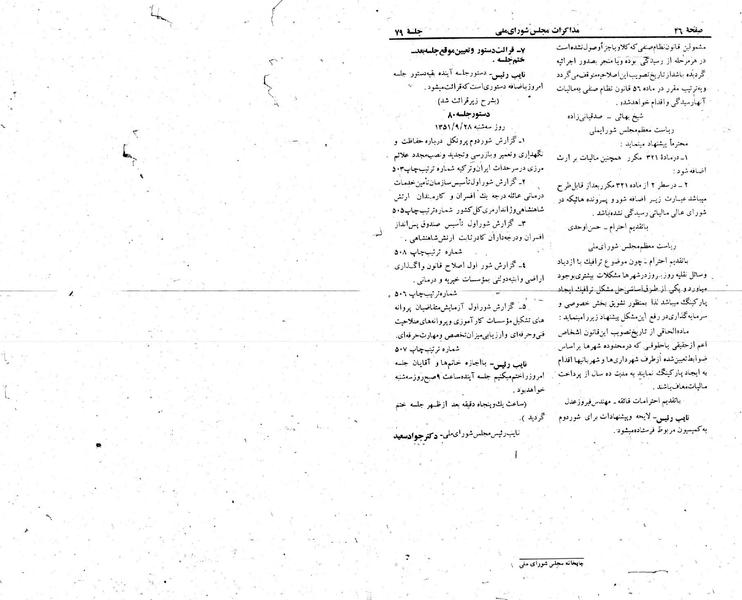 صفحهٔ ۲۶
مذاکرات مجلس شورای ملی
جلسهٔ ۷۹
مشمولین قانون نظام صنفی که کلا و یا جزأ وصول نشده است
در هر مرحله از رسیدگی بوده و یا منجر بصدور اجرائیه
گردیده باشد از تاریخ تصویب این اصلاحیه متوقف می‌گردد
و به ترتیب مقرر در ماده ۵۶ قانون نظام صنفی به مالیات
آنها رسیدگی و اقدام خواهد شد.
شیخ بهائی - صدقیانی زاده
ریاست معظم مجلس شورایملی
محترماً پیشنهاد مینماید :
۱- در مادهٔ ۳۲۱ مکرر همچنین مالیات بر ارث
اضافه شود :
۲- در سطر ۲ از ماده ۳۲۱ مکرر بعد از قابل طرح
میباشد عبارت زیر اضافه شود و پرونده هائیکه در
شورای عالی مالیاتی رسیدگی نشده باشد.
باتقدیم احترام - حسن اوحدی
ریاست معظم مجلس شورای ملی
باتقدیم احترام - چون موضوع ترافیک با ازدیاد
وسائل نقلیه روز بروز در شهرها مشکلات بیشتری بوجود
میآورد و یکی از طرق اساسی حل مشکل ترافیک ایجاد
پارکینگ میباشد لذا بمنظور تشویق بخش خصوصی و
سرمایه گذاری در رفع این مشکل پیشنهاد زیر را مینماید :
ماده الحاقی از تاریخ تصویب این قانون اشخاص
اعم از حقیقی یا حقوقی که در محدوده شهرها بر اساس
ضوابط تعیین شده از طرف شهرداری‌ها و شهربانیها اقدام
به ایجاد پارکینگ نمایند به مدت ده سال از پرداخت
مالیات معاف باشند.
باتقدیم احترامات فائقه - مهندس فیروز عدل
نایب رئیس- لایحه و پیشنهادات برای شور دوم
به کمیسیون مربوط فرستاده میشود.
۷- قرائت دستور و تعیین موقع جلسه بعد -
ختم جلسه .
نایب رئیس- دستور جلسه آینده بقیه دستور جلسه
امروز باضافه دستوری است که قرائت میشود.
(بشرح زیر قرائت شد)
دستور جلسه ۸۰
روز سه‌شنبه ۱۳۵۱/۹/۲۸
۱- گزارش شور دوم پروتکل درباره حفاظت و
نگهداری و تعمیر و بازرسی و تجدید و نصب مجدد علائم
مرزی در سرحدات ایران و ترکیه شماره ترتیب چاپ ۵۰۳
۲- گزارش شور اول تأسیس سازمان تأمین خدمات
درمانی عائله درجه یک افسران و کارمندان ارتش
شاهنشاهی و ژاندارمری کل کشور شماره ترتیب چاپ ۵۰۵
۳- گزارش شور اول تأسیس صندوق پس‌انداز
افسران و درجه‌داران کادر ثابت ارتش شاهنشاهی .
شماره ترتیب چاپ ۵۰۸
۴- گزارش شور اول اصلاح قانون واگذاری
اراضی و ابنیه دولتی بمؤسسات خیریه و درمانی .
شماره ترتیب چاپ ۵۰۶
۵- گزارش شور اول آزمایش متقاضیان پروانه
های تشکیل مؤسسات کارآموزی و پروانه های صلاحیت
فنی و حرفه‌ای و ارزیابی میزان تخصص و مهارت حرفه‌ای.
شماره ترتیب چاپ ۵۰۷
نایب رئیس- با اجازه خانم‌ها و آقایان جلسه
امروز را ختم میکنیم جلسه آینده ساعت ۹ صبح روز سه‌شنبه
خواهد بود.
(ساعت یک و پنجاه دقیقه بعد از ظهر جلسه ختم
گردید ).
نایب رئیس مجلس شورای ملی- دکتر جواد سعید
چاپخانه مجلس شورای ملی